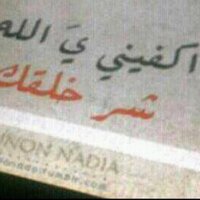 اكفيني يَ الله
شر خلقك
NON NADIA